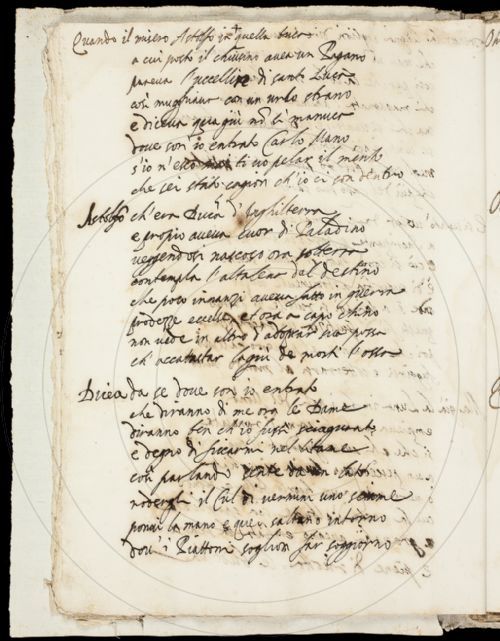 Quando il misero Astolfo in quella buca
a cui posto il chiusino avea un Pagano
pareva Puccellin di santo Luca
così mugliava con un urlo strano
e diceva qua giù no la manuca
dove son io entrato Carlo Mano
s'io n'esco ti vo pelar il mento
che sei stato cagion ch'io ci son dentro
Astolfo ch'era Duca d'Inghilterra
e propio aveva cuor di Paladino
veggendosi nascoso ora sotterra
contempla l'altalear del destino
che poco innanzi aveva fatto in guerra
prodezze eccelse, et ora a capo chino
non vede in altro d'adoprar sua possa
ch'accatastar laggiù de morti l'ossa
Dicea da se dove son io entrato
che diranno di me ora le Dame
diranno ben ch'io fussi sciagurato
e degno di ficcarmi nel litame
così parlando sente da un lato
rodergli il Cul di vermini uno sciame
ponvi la mano e quei saltano intorno
dov'i Piattoni soglion far soggiorno